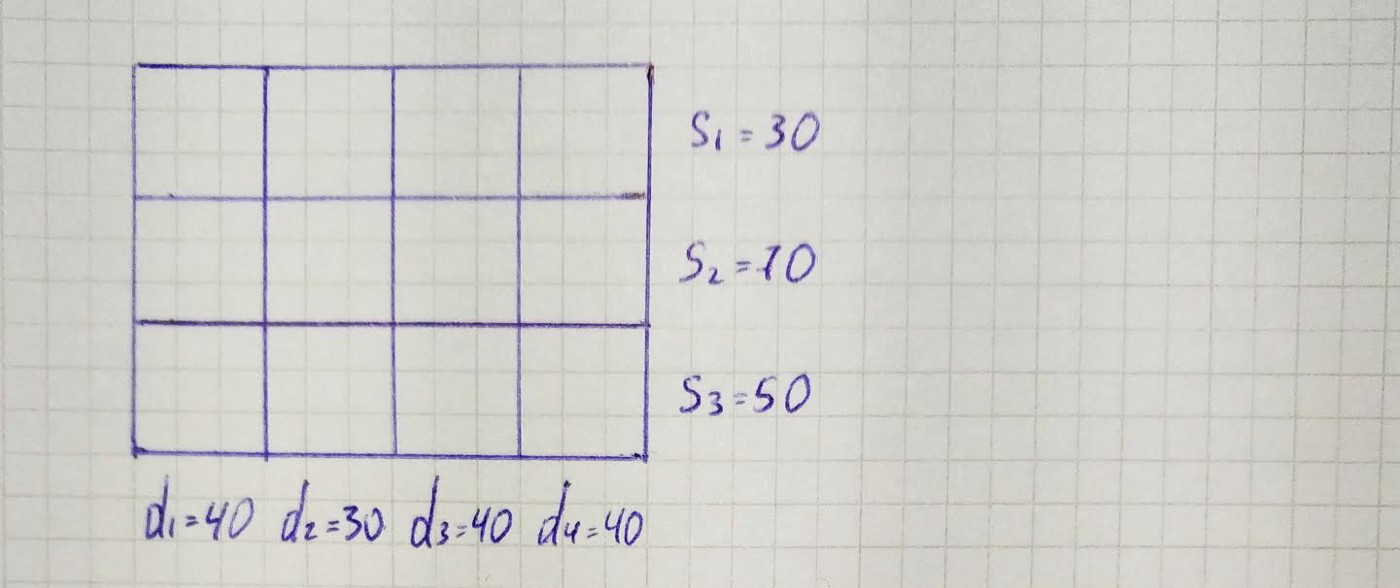 S₁ = 30
S₂ = 70
S₃ = 50
d₁ = 40 d₂ = 30 d₃ = 40 d₄ = 40